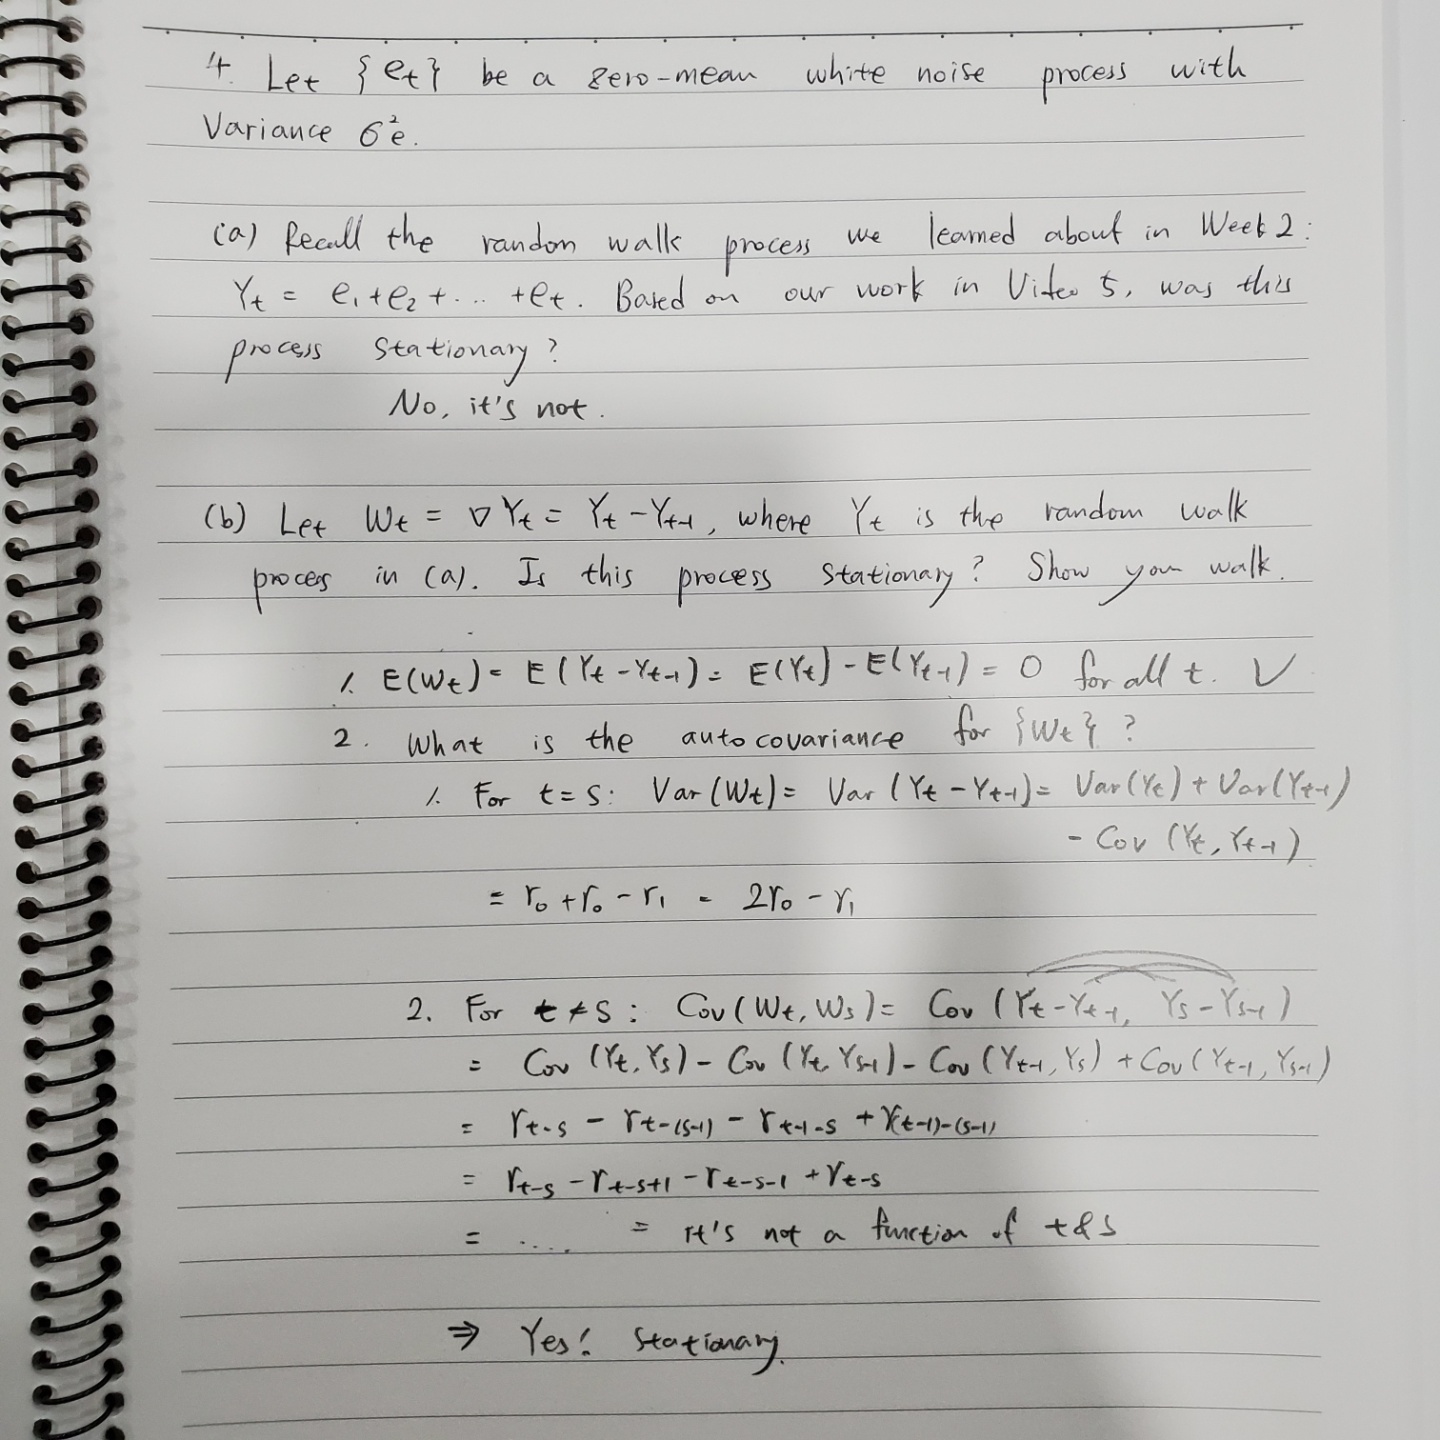 4. Let {et} be a zero-mean white noise process with
Variance σ²e.
(a) Recall the random walk process we learned about in Week 2:
Yt = e1+e2+... +et. Based on our work in Video 5, was this
process stationary?
No, it's not.
(b) Let Wt = ∇Yt = Yt-Yt-1, where Yt is the random walk
process in (a). Is this process stationary? Show your walk.
1. E(Wt) = E(Yt-Yt-1) = E(Yt)-E(Yt-1) = 0 for all t. ✓
2. What is the autocovariance for {Wt}?
1. For t=s: Var(Wt) = Var(Yt-Yt-1) = Var(Yt)+Var(Yt-1)
-Cov(Yt, Yt-1)
= r0+r0-r1 = 2r0-r1
2. For t≠s: Cov(Wt, Ws) = Cov(Yt-Yt-1, Ys-Ys-1)
= Cov(Yt, Ys)-Cov(Yt, Ys-1)-Cov(Yt-1, Ys)+Cov(Yt-1, Ys-1)
= rt-s - rt-(s-1) - rt-1-s + r(t-1)-(s-1)
= rt-s - rt-s+1 - rt-s-1 + rt-s
= .... = it's not a function of t&s
⇒ Yes! Stationary.